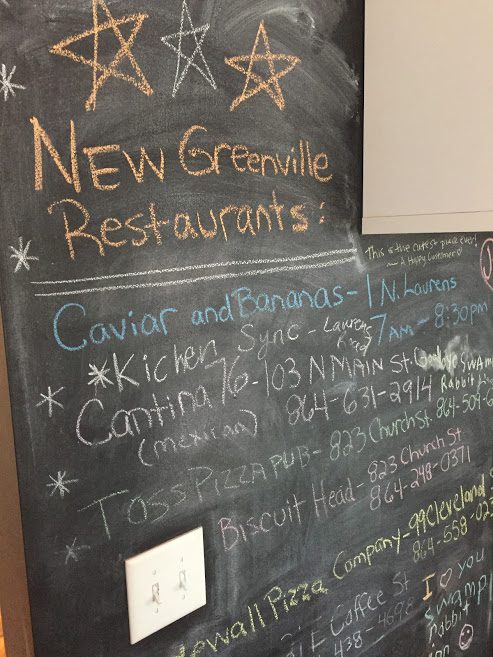 NEW Greenville
Restaurants:
This is the cutest place ever!
~ A Happy Customer
Caviar and Bananas - 1 N. Laurens
7AM - 8:30pm
*Kichen Sync - Laurens
Road
Cantina 76 - 103 N MAIN St.
(Mexican) 864-631-2914
Rabbit
Toss PIZZA PUB - 823 Church St. 864-504-
Biscuit Head - 823 Church St
864-248-0371
ewall Pizza Company - 99 Cleveland S
864-558-02
Coffee St
438-469
I ♡ you
swamp
rabbit
inn